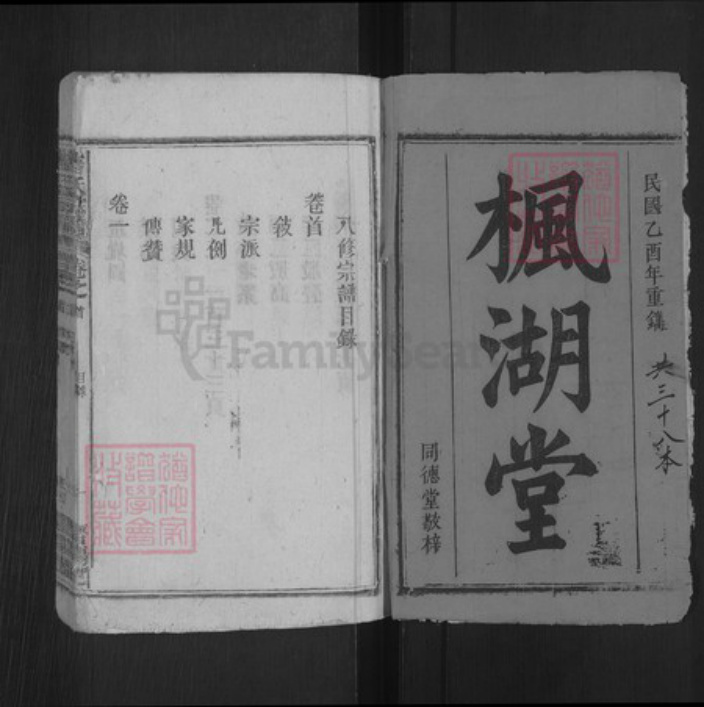 民國乙酉年重鐫
共三十八本
楓湖堂
同德堂敬梓
八修宗譜目錄
卷首
敘
宗派
凡例
家規
傳贊
卷一
目錄
FamilySearch